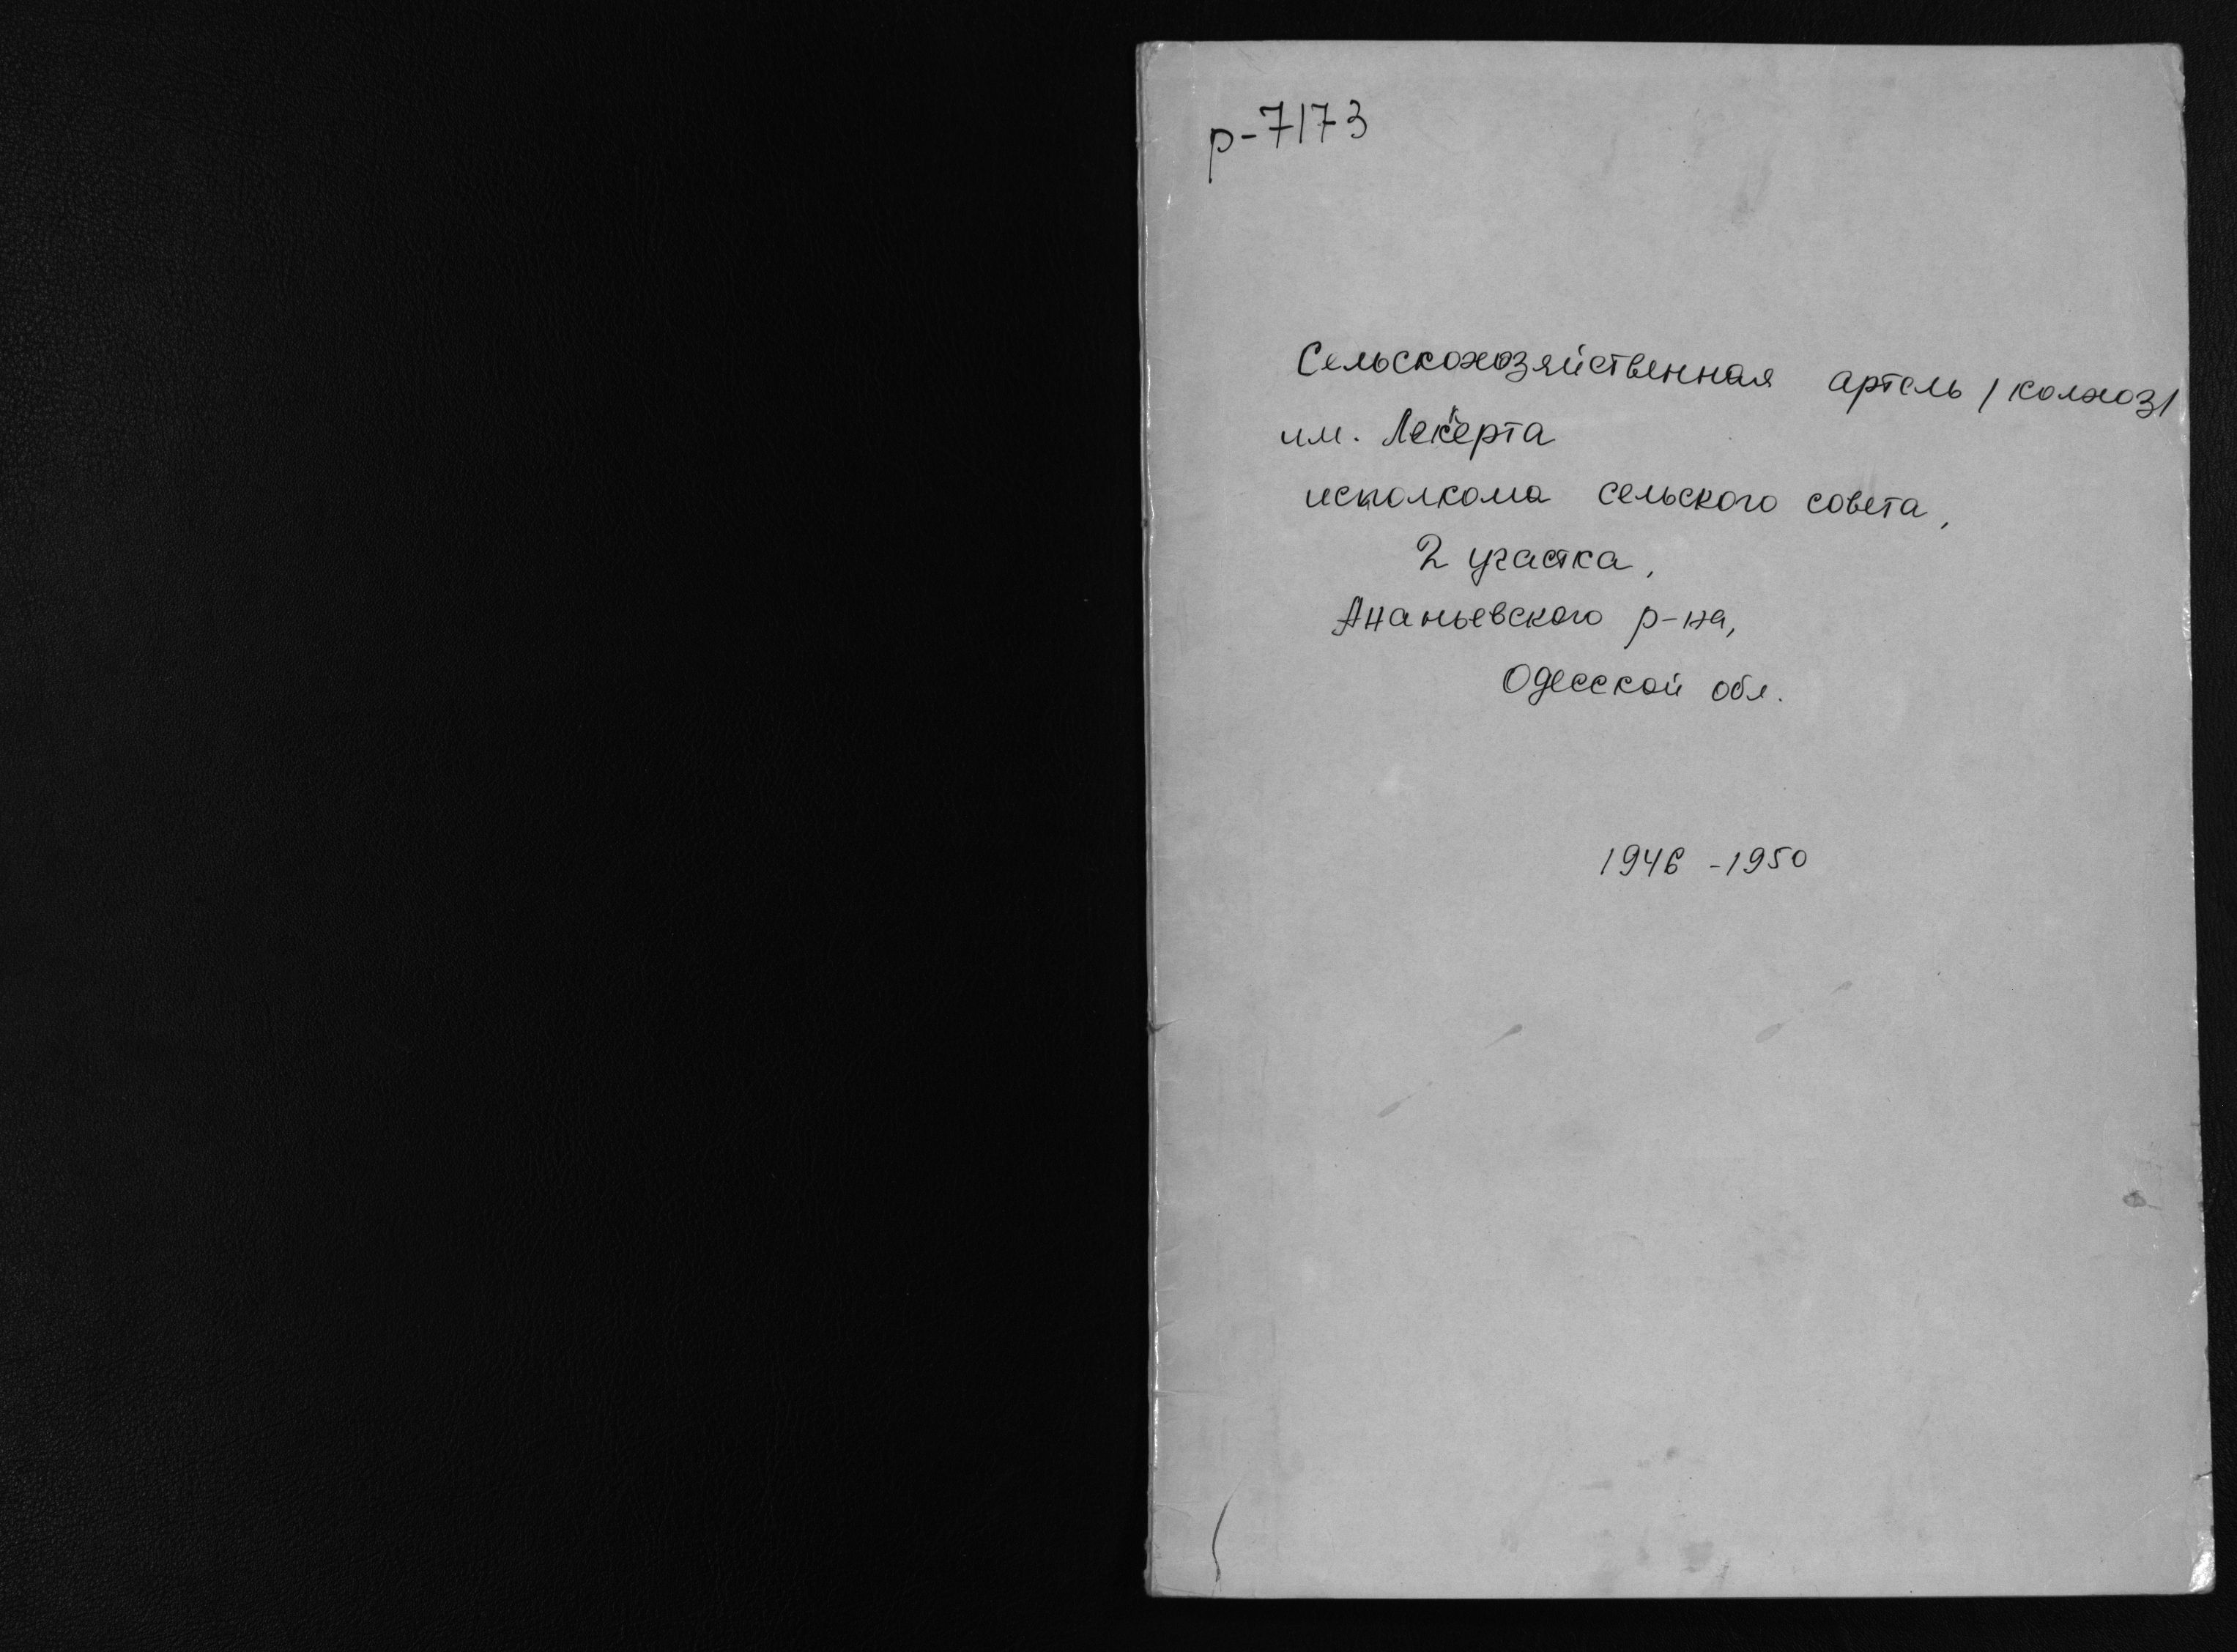 р-7173
Сельскохозяйственная артель /колхоз/
им. Лекерта
исполкома сельского совета,
2 участка,
Ананьевского р-на,
Одесской обл.
1946 - 1950